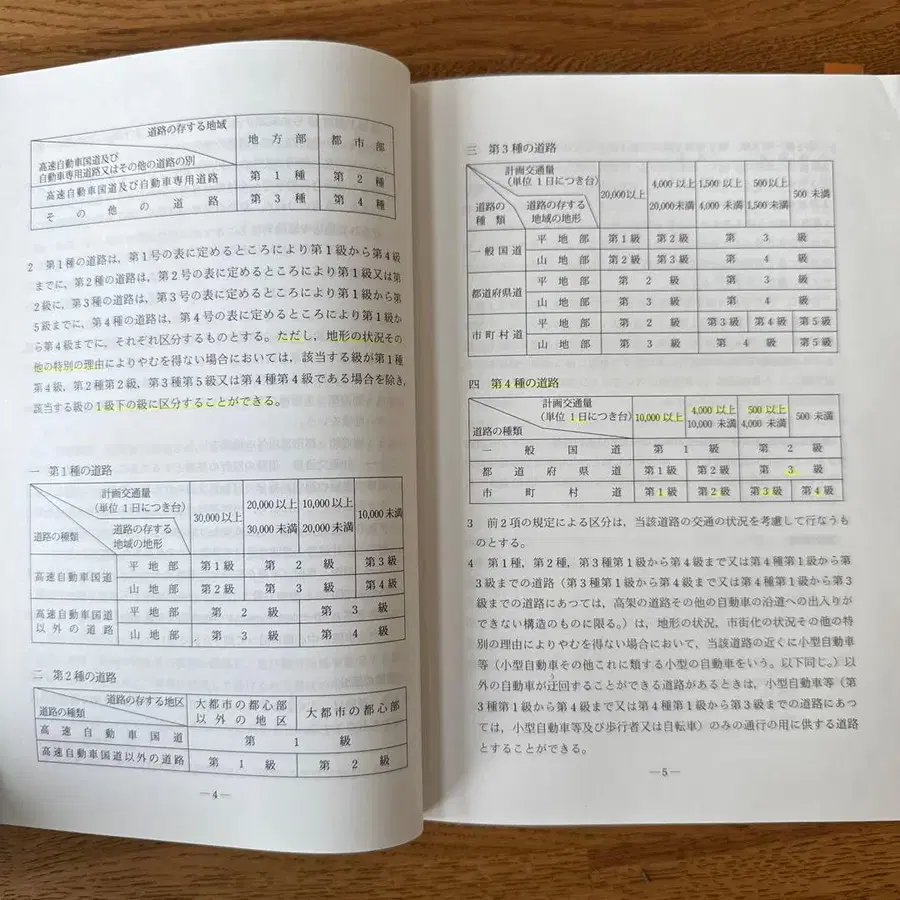 道路の存する地域
高速自動車国道及び
自動車専用道路又はその他の道路の別
地方部 都市部
高速自動車国道及び自動車専用道路 第1種 第2種
その他の道路 第3種 第4種
2 第1種の道路は,第1号の表に定めるところにより第1級から第4級
までに,第2種の道路は,第2号の表に定めるところにより第1級又は第
2級に,第3種の道路は,第3号の表に定めるところにより第1級から第
5級までに,第4種の道路は,第4号の表に定めるところにより第1級か
ら第4級までに,それぞれ区分するものとする。ただし,地形の状況その
他の特別の理由によりやむを得ない場合においては,該当する級が第1種
第4級,第2種第2級,第3種第5級又は第4種第4級である場合を除き,
該当する級の1級下の級に区分することができる。
一 第1種の道路
計画交通量
(単位1日につき台)
道路の存する
地域の地形
道路の種類
30,000以上 20,000以上 30,000未満 10,000以上 20,000未満 10,000未満
高速自動車国道 平地部 第1級 第2級 第3級
山地部 第2級 第3級 第4級
高速自動車国道以外の道路 平地部 第2級 第3級
山地部 第3級 第4級
二 第2種の道路
道路の存する地区
道路の種類
大都市の都心部以外の地区 大都市の都心部
高速自動車国道 第1級
高速自動車国道以外の道路 第1級 第2級
―4―
三 第3種の道路
計画交通量
(単位1日につき台)
道路の種類
道路の存する
地域の地形
20,000以上 4,000以上 20,000未満 1,500以上 4,000未満 500以上 1,500未満 500未満
一般国道 平地部 第1級 第2級 第3級
山地部 第2級 第3級 第4級
都道府県道 平地部 第2級 第3級
山地部 第3級 第4級
市町村道 平地部 第2級 第3級 第4級 第5級
山地部 第3級 第4級 第5級
四 第4種の道路
計画交通量
(単位1日につき台)
道路の種類
10,000以上 4,000以上 10,000未満 500以上 4,000未満 500未満
一般国道 第1級 第2級
都道府県道 第1級 第2級 第3級
市町村道 第1級 第2級 第3級 第4級
3 前2項の規定による区分は,当該道路の交通の状況を考慮して行なうも
のとする。
4 第1種,第2種,第3種第1級から第4級まで又は第4種第1級から第
3級までの道路(第3種第1級から第4級まで又は第4種第1級から第3
級までの道路にあつては,高架の道路その他の自動車の沿道への出入りが
できない構造のものに限る。)は,地形の状況,市街化の状況その他の特
別の理由によりやむを得ない場合において,当該道路の近くに小型自動車
等(小型自動車その他これに類する小型の自動車をいう。以下同じ。)以
外の自動車が迂回することができる道路があるときは,小型自動車等(第
3種第1級から第4級まで又は第4種第1級から第3級までの道路にあつ
ては,小型自動車等及び歩行者又は自転車)のみの通行の用に供する道路
とすることができる。
―5―